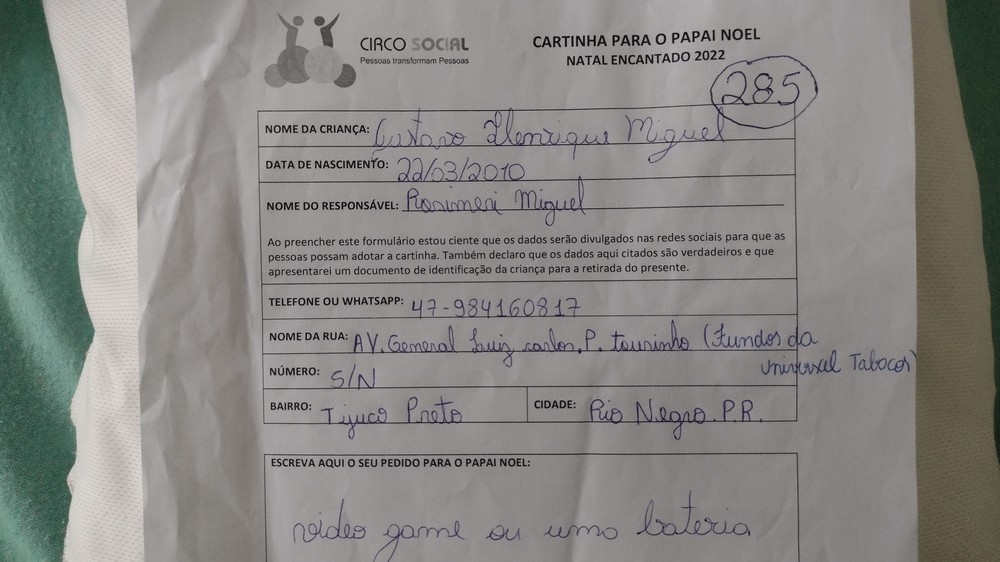 CIRCO SOCIAL
Pessoas transformam Pessoas
CARTINHA PARA O PAPAI NOEL
NATAL ENCANTADO 2022
285
NOME DA CRIANÇA: Gustavo Henrique Miguel
DATA DE NASCIMENTO: 22/03/2010
NOME DO RESPONSÁVEL: Rosimeri Miguel
Ao preencher este formulário estou ciente que os dados serão divulgados nas redes sociais para que as
pessoas possam adotar a cartinha. Também declaro que os dados aqui citados são verdadeiros e que
apresentarei um documento de identificação da criança para a retirada do presente.
TELEFONE OU WHATSAPP: 47-984160817
NOME DA RUA: AV. General Luiz carlos. P. tourinho (Fundos da
universal Tabacos)
NÚMERO: S/N
BAIRRO: Tijuco Preto CIDADE: Rio Negro. P.R.
ESCREVA AQUI O SEU PEDIDO PARA O PAPAI NOEL:
video game ou uma bateria